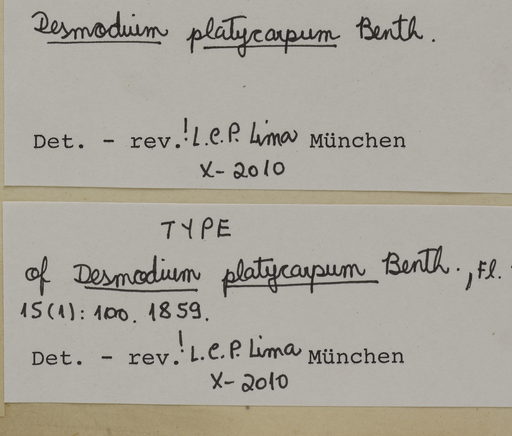 Desmodium platycarpum Benth.
Det. - rev.! L.C.P. Lima München
X-2010
TYPE
of Desmodium platycarpum Benth., Fl.
15(1): 100. 1859.
Det. - rev.! L.C.P. Lima München
X-2010